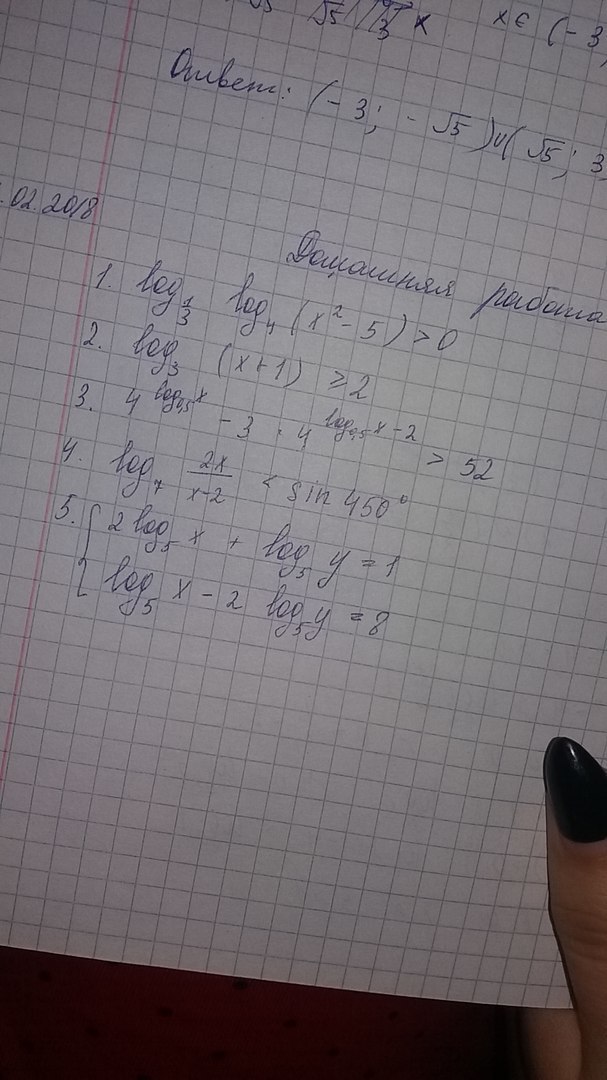 x ∈ (-3;
Ответ: (-3; -√5)∪(√5; 3
.02.2018
Домашняя работа
1. log_{1/3} log_4 (x² - 5) > 0
2. log_3 (x+1) ≥ 2
3. 4^{log_{0,5} x} - 3 · 4^{log_{0,5} x - 2} > 52
4. log_7 2x/(x-2) < sin 450°
5. { 2 log_5 x + log_5 y = 1
{ log_5 x - 2 log_5 y = 8